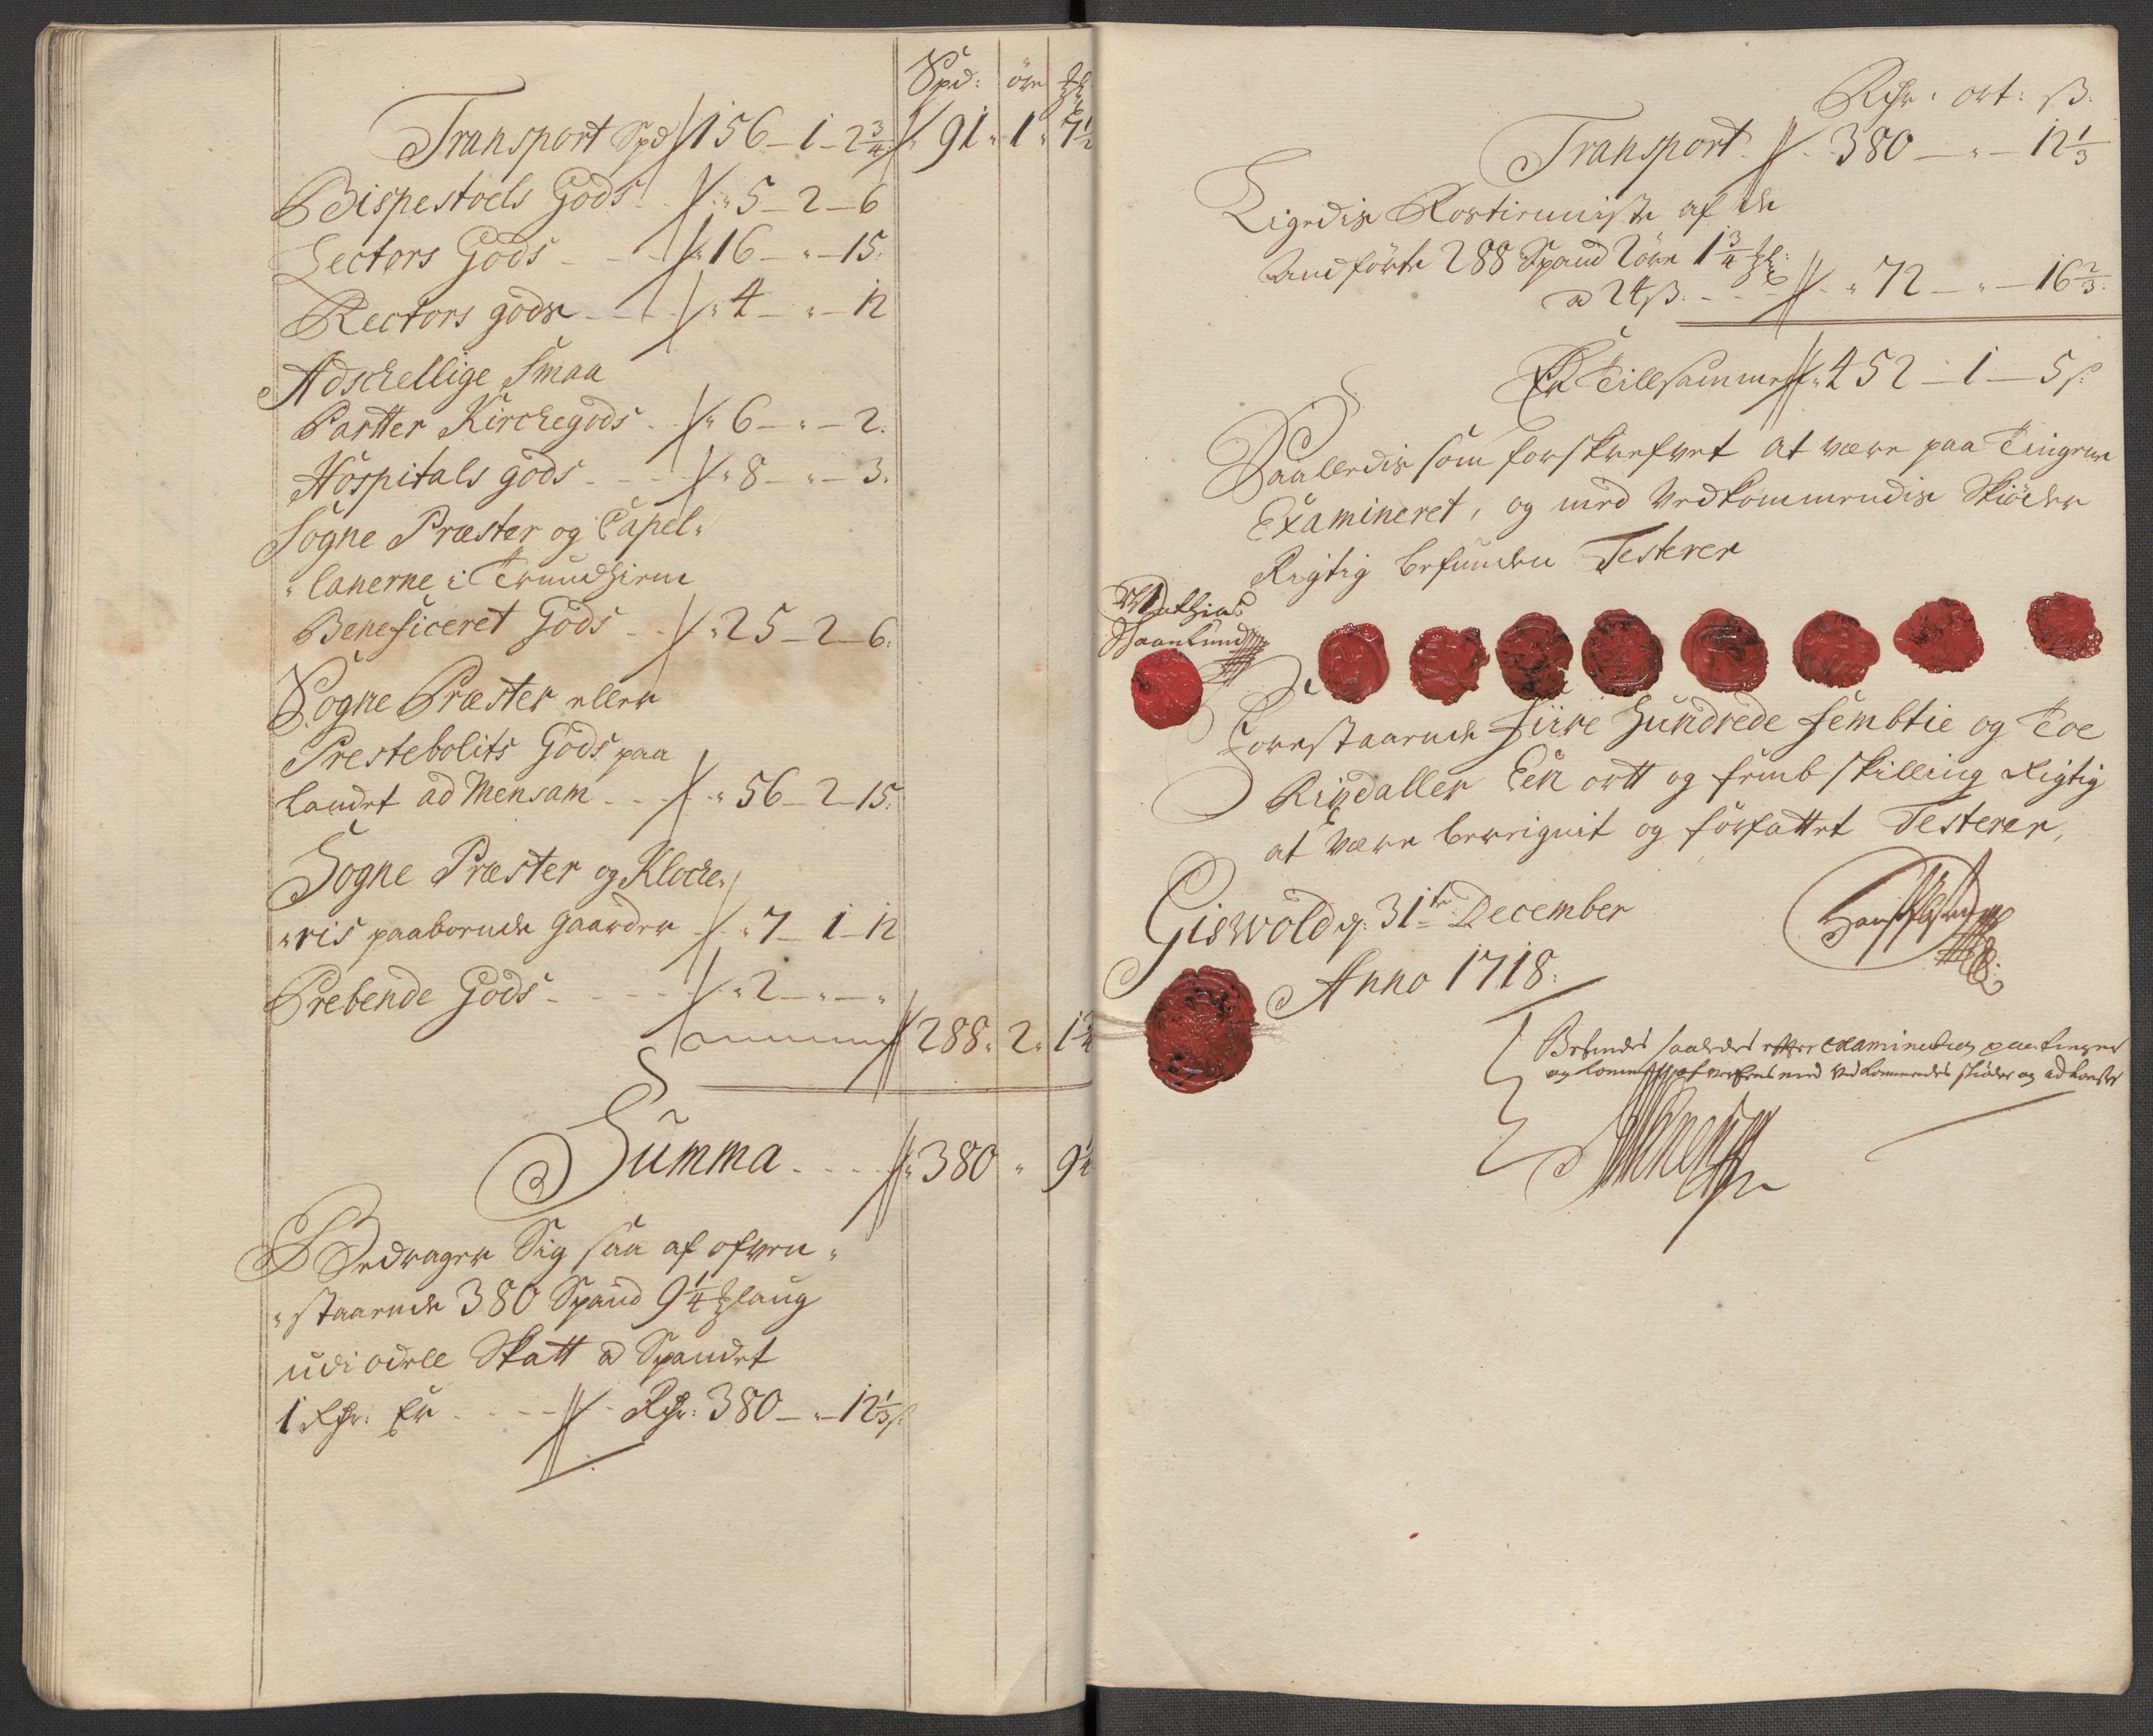 Spd: öre
Transport Spd 156 – 1 – 2 3/4 91 " 1 " 7 1/2
Bispestoels Gods " 5 – 2 – 6
Lectors Gods " 16 – " – 15.
Rectors gods " 4 – " – 12
Adschellige Smaa
Partter Kirchegods " 6 – " – 2.
Hospitals gods " 8 – " – 3.
Sogne Præster og Capel"
"lanerne i Trundhiem
Beneficeret Gods " 25 – 2 – 6:
Sogne Præster eller
Prestebolits Gods paa
landet ad Mensam " 56 – 2 – 15:
Sogne Præster og Klocke"
"ris paaboende gaarder " 7 – 1 – 12
Prebende Gods " 2 – " – "
288 " 2 " 1 3/4
Summa 380 " 9 1/4
Bedrager Sig saa af ofven"
"staaende 380 Spand 9 1/4 laug
udi odell Skatt a Spandet
1 Rdr: Er Rdr: 380 – " – 12 1/3 s
Rdr: ort: s.
Transport 380 – " – 12 1/3
Ligedis af de
Anförte 288 Spand 2 öre 1 3/4
a 24 s. " 72 – " – 16 2/3.
Er Tillsammen 452 – 1 – 5 s
Saalledis som forskrefvet at være paa Tingene
Examineret, og med Vedkommendis Skiöder
Rigtig befunden Testerer
Mathias
Forestaaende fiire Hundrede fembtie og Toe
Rixdaller Een ortt og femb skilling Rigtig
at være beregnit og forfattet Testerer,
Giswold d: 31te December
Anno 1718:
Befindes saaledes etter examination paa tinget
og med vedkommendes skiöder og